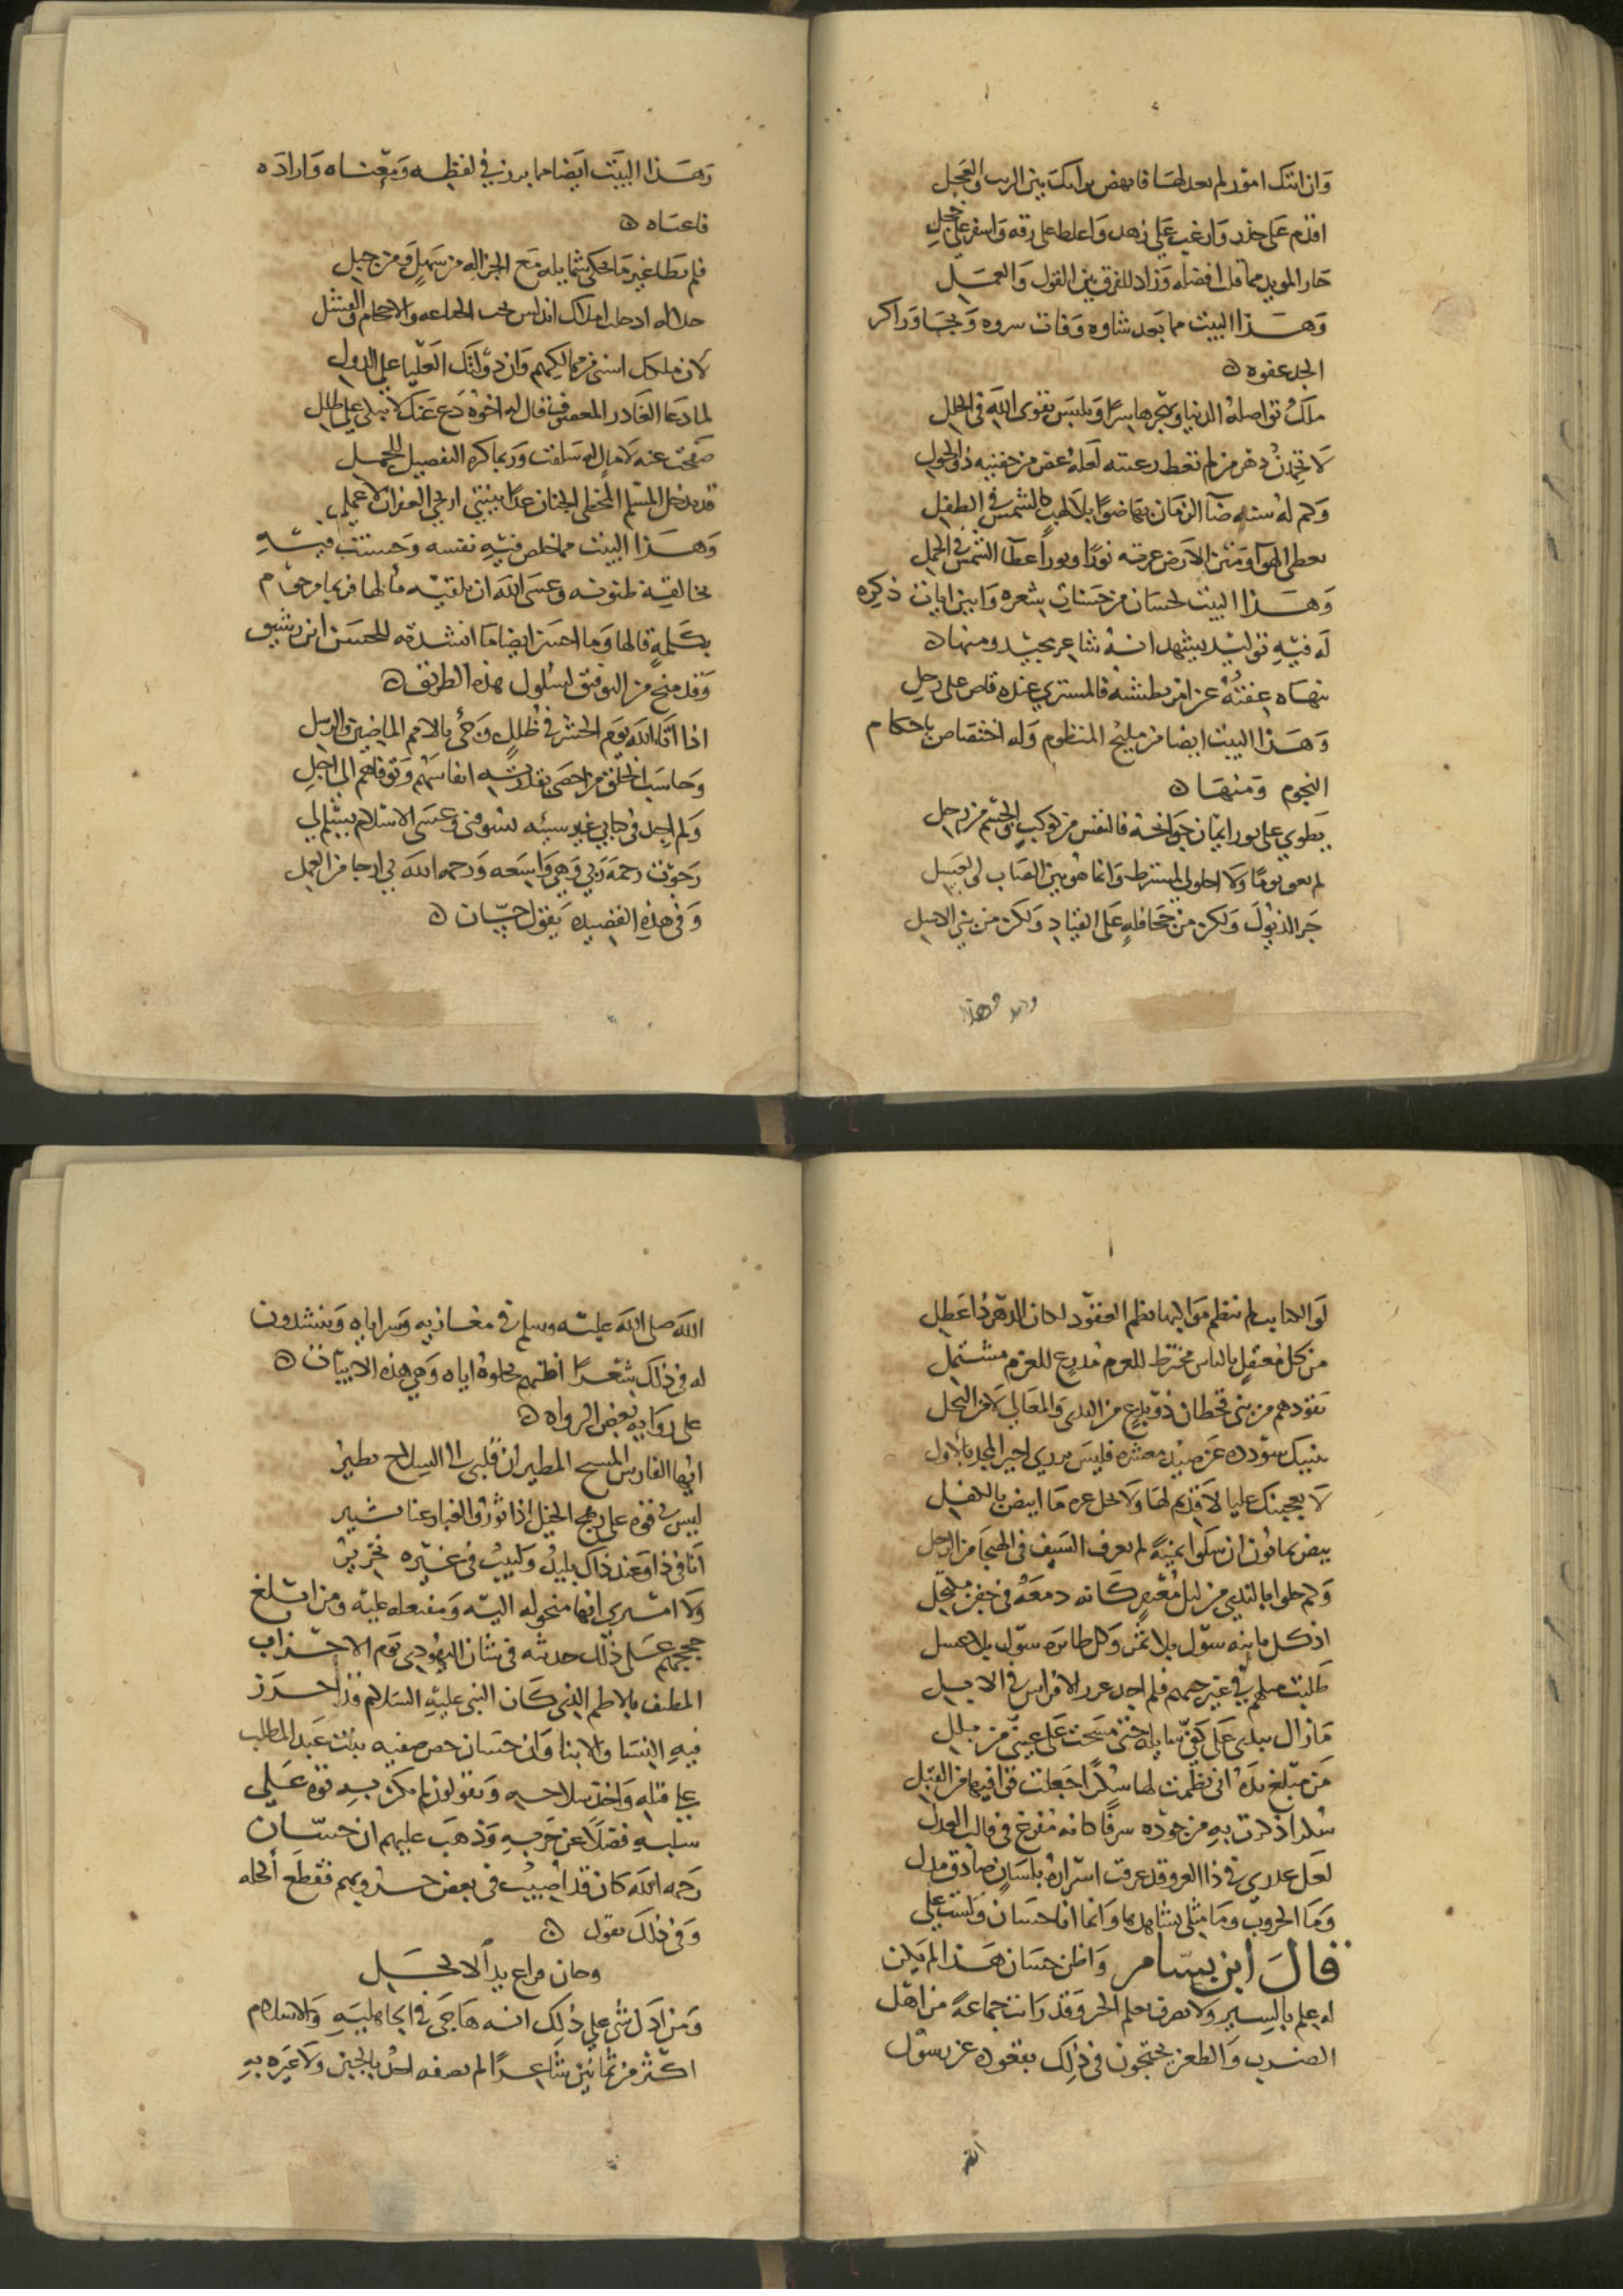 وان اتتك امور لم تعد لها فانهض برايك بين الريث والعجل
اقدم على حذر وارغب على زهد واغلظ على رقة واسفر على خجل
حاز المويد مما قل افضله وزاد للفرق بين القول والعمل
وهذا البيت مما بعد شاوه وفات سروه وتجاوز اكر
الجد عفوه ه
ملك تواصله الدنيا ويهجرها سرا ويلبس تقوى الله في الحلل
لا تحمدن دهر من لم تعط رعيته لعله غض من جفنيه ذو الحول
وكم له سنه ضآ الزمان بها ضوا بلا لهب كالشمس في الطفل
يعطي الهوآ ومتن الارض عرفه نورا ونورا عطآ الشمس في الحمل
وهذا البيت لحسان من حسنات شعره وابين ايات ذكره
له فيه توليد يشهد انه شاعر مجيد ومنها ه
ينهاه عفته عن امر بطشته فالمشتري عنده قاض على زحل
وهذا البيت ايضا من مليح المنظوم وله اختصاص باحكام
النجوم ومنها ه
يطوي على نور ايمان جوانحه فالنفس من كوكب والجسم من رجل
جر الذيول ولكن من جحافله على القياد ولكن من بني الاسل
وهذا
وهذا البيت ايضا مما برز في لفظه ومعناه واراده
فاعتاه ه
فلم يطا غير ما يحكي شمايله مع الجزاله من سهل ومن جبل
لان ملكك اسنى من ممالكهم وان دولتك العليا على الدول
لما دعا الغادر المعصرف قال له اخوه دع عنك لا تبكي على طلل
صفحت عنه لامال له سلفت وربما كره التفصيل للجمل
قد يدخل المسلم المخطي الجنان غدا بنيتي ارتجي الغفران لا عملي
وهذا البيت مما خلص فيه نفسه وحسنت فيه
بخالقه ظنونه وعسى الله ان يلقيه مالها فربما مرحوم
بكلمة قالها وما احسن ايضا ما انشدته للحسن ابن رشيق
وقد منح من التوفيق لسلوك هذه الطريق ه
اذا اتا الله يوم الحشر في ظلل وجئ بالامم الماضين والرسل
وحاسب الخلق من احصى بقدرته انفاسهم وتوفاهم الى اجل
ولم اجد في كتابي غير سيئه تسوني وعسى الاسلام يسلم لي
رجوت رحمة ربي وهي واسعه ورحمه الله بي ارجا من العمل
وفي هذه القصيده يقول حسان ه
لو الكتايب لم تنظم مواليها نظم العقود لكان الدهر ذا عطل
من كل معتقل بالباس مخترط للعزم مدرع للعزم مشتمل
تقودهم من بني قحطان ذو بدع من الندى والمعالي لا من النحل
ينبيك سودده عن صيد معشره فليس يدري اخير المجد بالاول
لا يعجبنك عليا لا قديم لها ولا تحل غره ما ابيض بالكفل
بيض يمانون ان سلوا يمنية لم يعرف السيف في الهيجا من الرجل
وكم حلوا بالندى من ليل معتر كانه دمعة في جفن مكتحل
اذ كل ماينه سول بلا ثمن وكل طايره سول بلا عسل
طلبت مثلهم في غير حيهم فلم اجد غرر الافراس في الابل
ما زال يبدى على كفي سايله حتى مسحت على عيني من بلل
من مبلغ بدهر اني نظمت لها شكرا جعلت قوافيها من القبل
شكرا ذكرت به من جوده سرفا كانه مفرغ في قالب العدل
لعل عذري في ذا الغزو قد عرفت اسراره بلسان صادق مدل
وما الحروب وما مثلي يشاهدها وانما انا حسان ولست علي
قال ابن بسام واظن حسان هذا لم يكن
له علم بالسير ولا تصرف بعلم الخبر وقد رايت جماعة من اهل
الضرب والطعن يحتجون في ذلك بقعوده عن رسول
الله
الله صلى الله عليه وسلم في مغازيه وسراياه وينشدون
له في ذلك شعرا اظنهم نحلوه اياه وهي هذه الابيات ه
على روايه بعض الرواه ه
ايها الفارس المشيح المطير ان قلبي من السلاح يطير
ليس لي قوه على رهج الخيل اذا ثور الغبار عنا شير
انا في ذا وعند ذاك بليد ولبيب في غيره نحرير
ولا امتري انها منحوله اليه ومفتعله عليه ومن ابلغ
حججهم على ذلك حديثه في شان اليهودي يوم الاحزاب
المطيف بالاطم الذي كان النبي عليه السلام قد احرز
فيه النسا والابنا وان حسان حض صفيه بنت عبد المطلب
على قتله واخذ سلاحه ويقولون لم يكن به قوه على
سلبه فضلا عن حربه وذهب عليهم ان حسان
رحمه الله كان قد اصيب في بعض حروبهم فقطع اكحله
وفي ذلك يقول ه
وخان قراع يد الاكحل
ومن ادل شي على ذلك انه هاجى في الجاهليه والاسلام
اكثر من ثمانين شاعرا لم يصفه احد بالجبن ولا عيره به